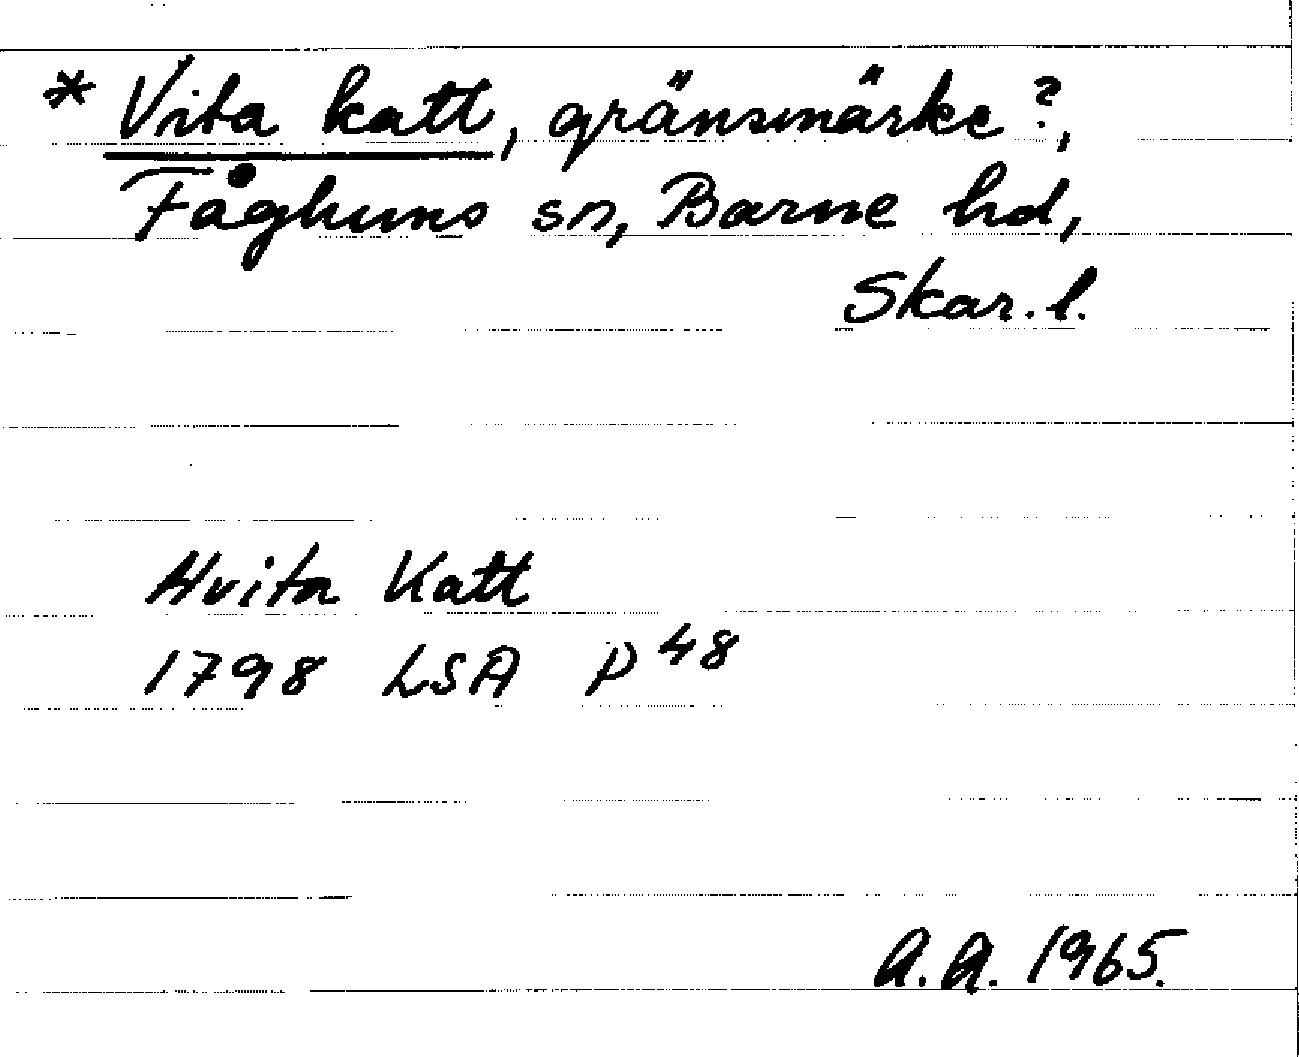 * Vita katt, gränsmärke?,
Fåghums sn, Barne hd,
Skar. l.
Hvita Katt
1798 LSA P 48
A.A. 1965.